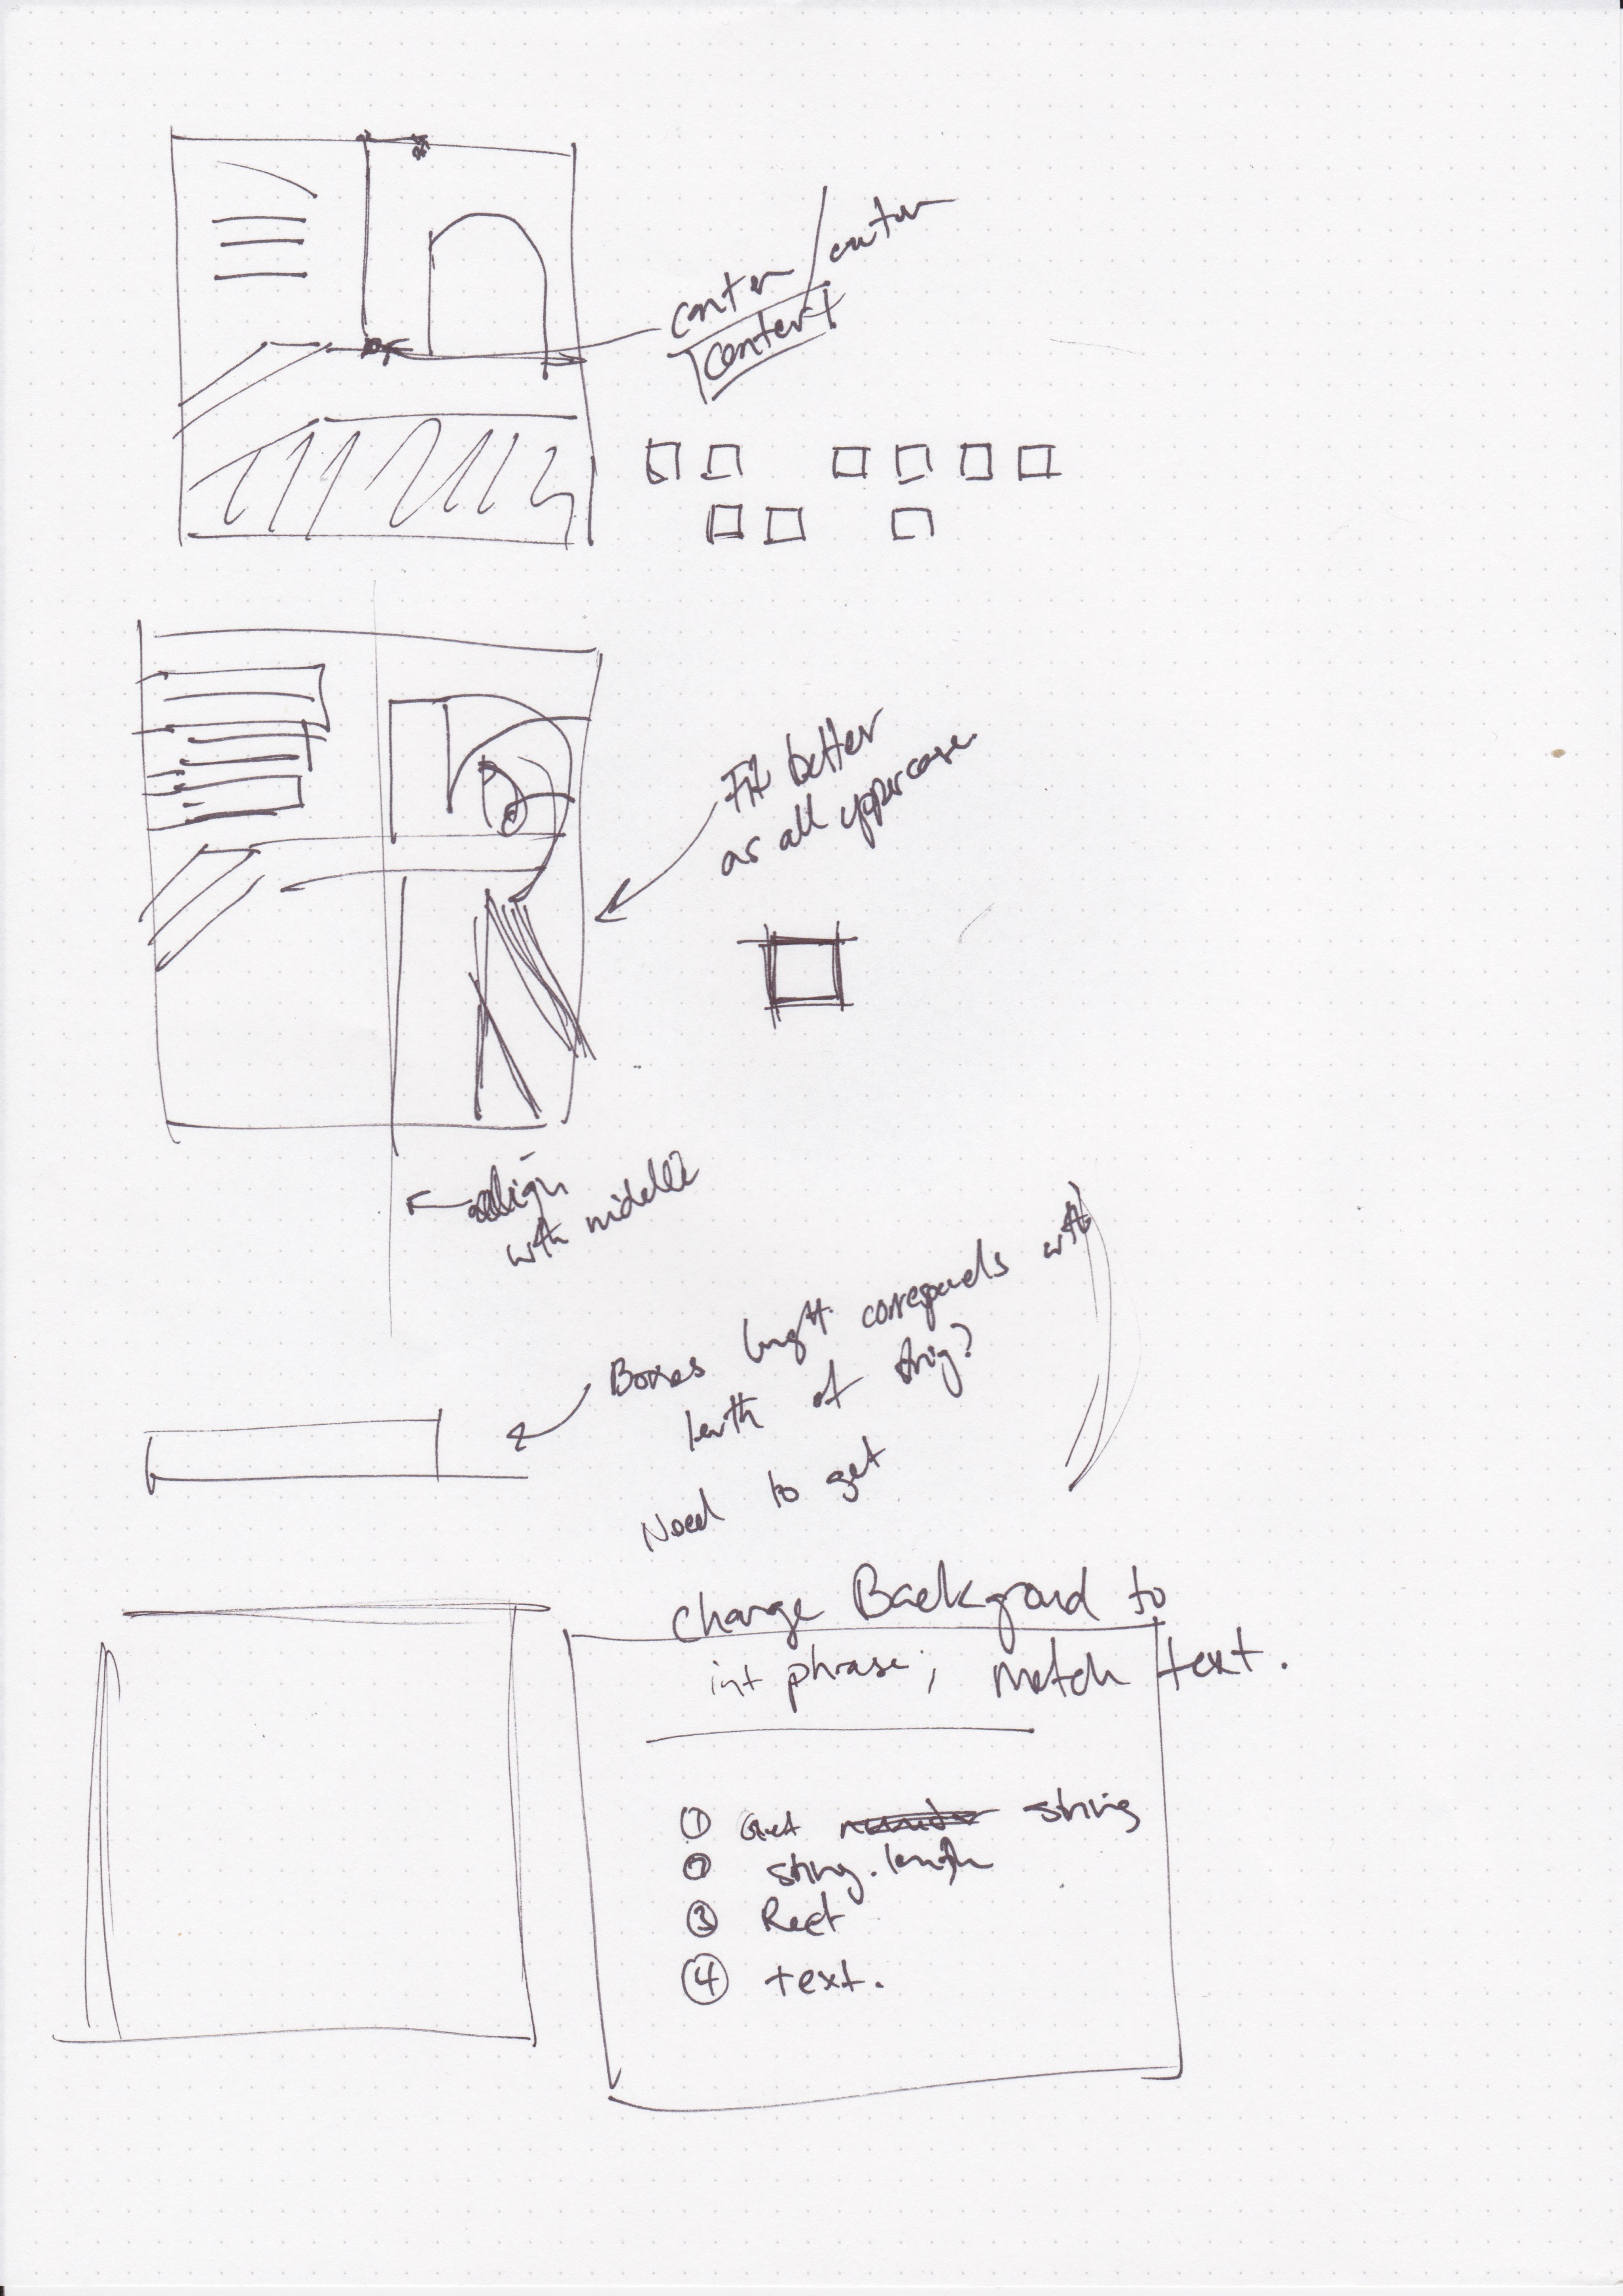 center/center
center!
Fit better
as all uppercase
align
with middle
Boxes lenght corresponds with
lenth of string?
Need to get
Change Background to
int phrase; match text.
① Get string
② string.length
③ Rect
④ text.